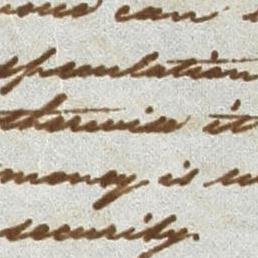 can
speculation
otherwise it
money is
security.